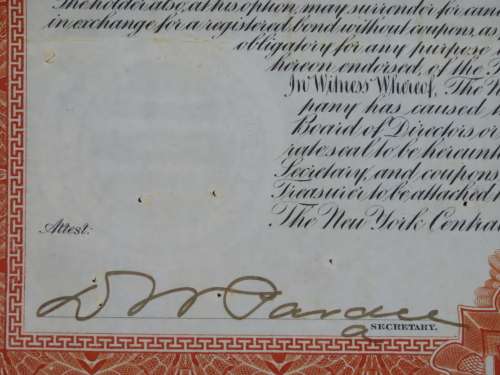 The holder also, at his option, may surrender for
in exchange for a registered bond without coupons, as
obligatory for any purpose
hereon endorsed, of the
In Witness Whereof, The
pany has caused
Board of Directors or
rate seal to be hereun
Secretary, and coupons
Treasurer to be attached
The New York Central
Attest:
D W Pardee
SECRETARY.